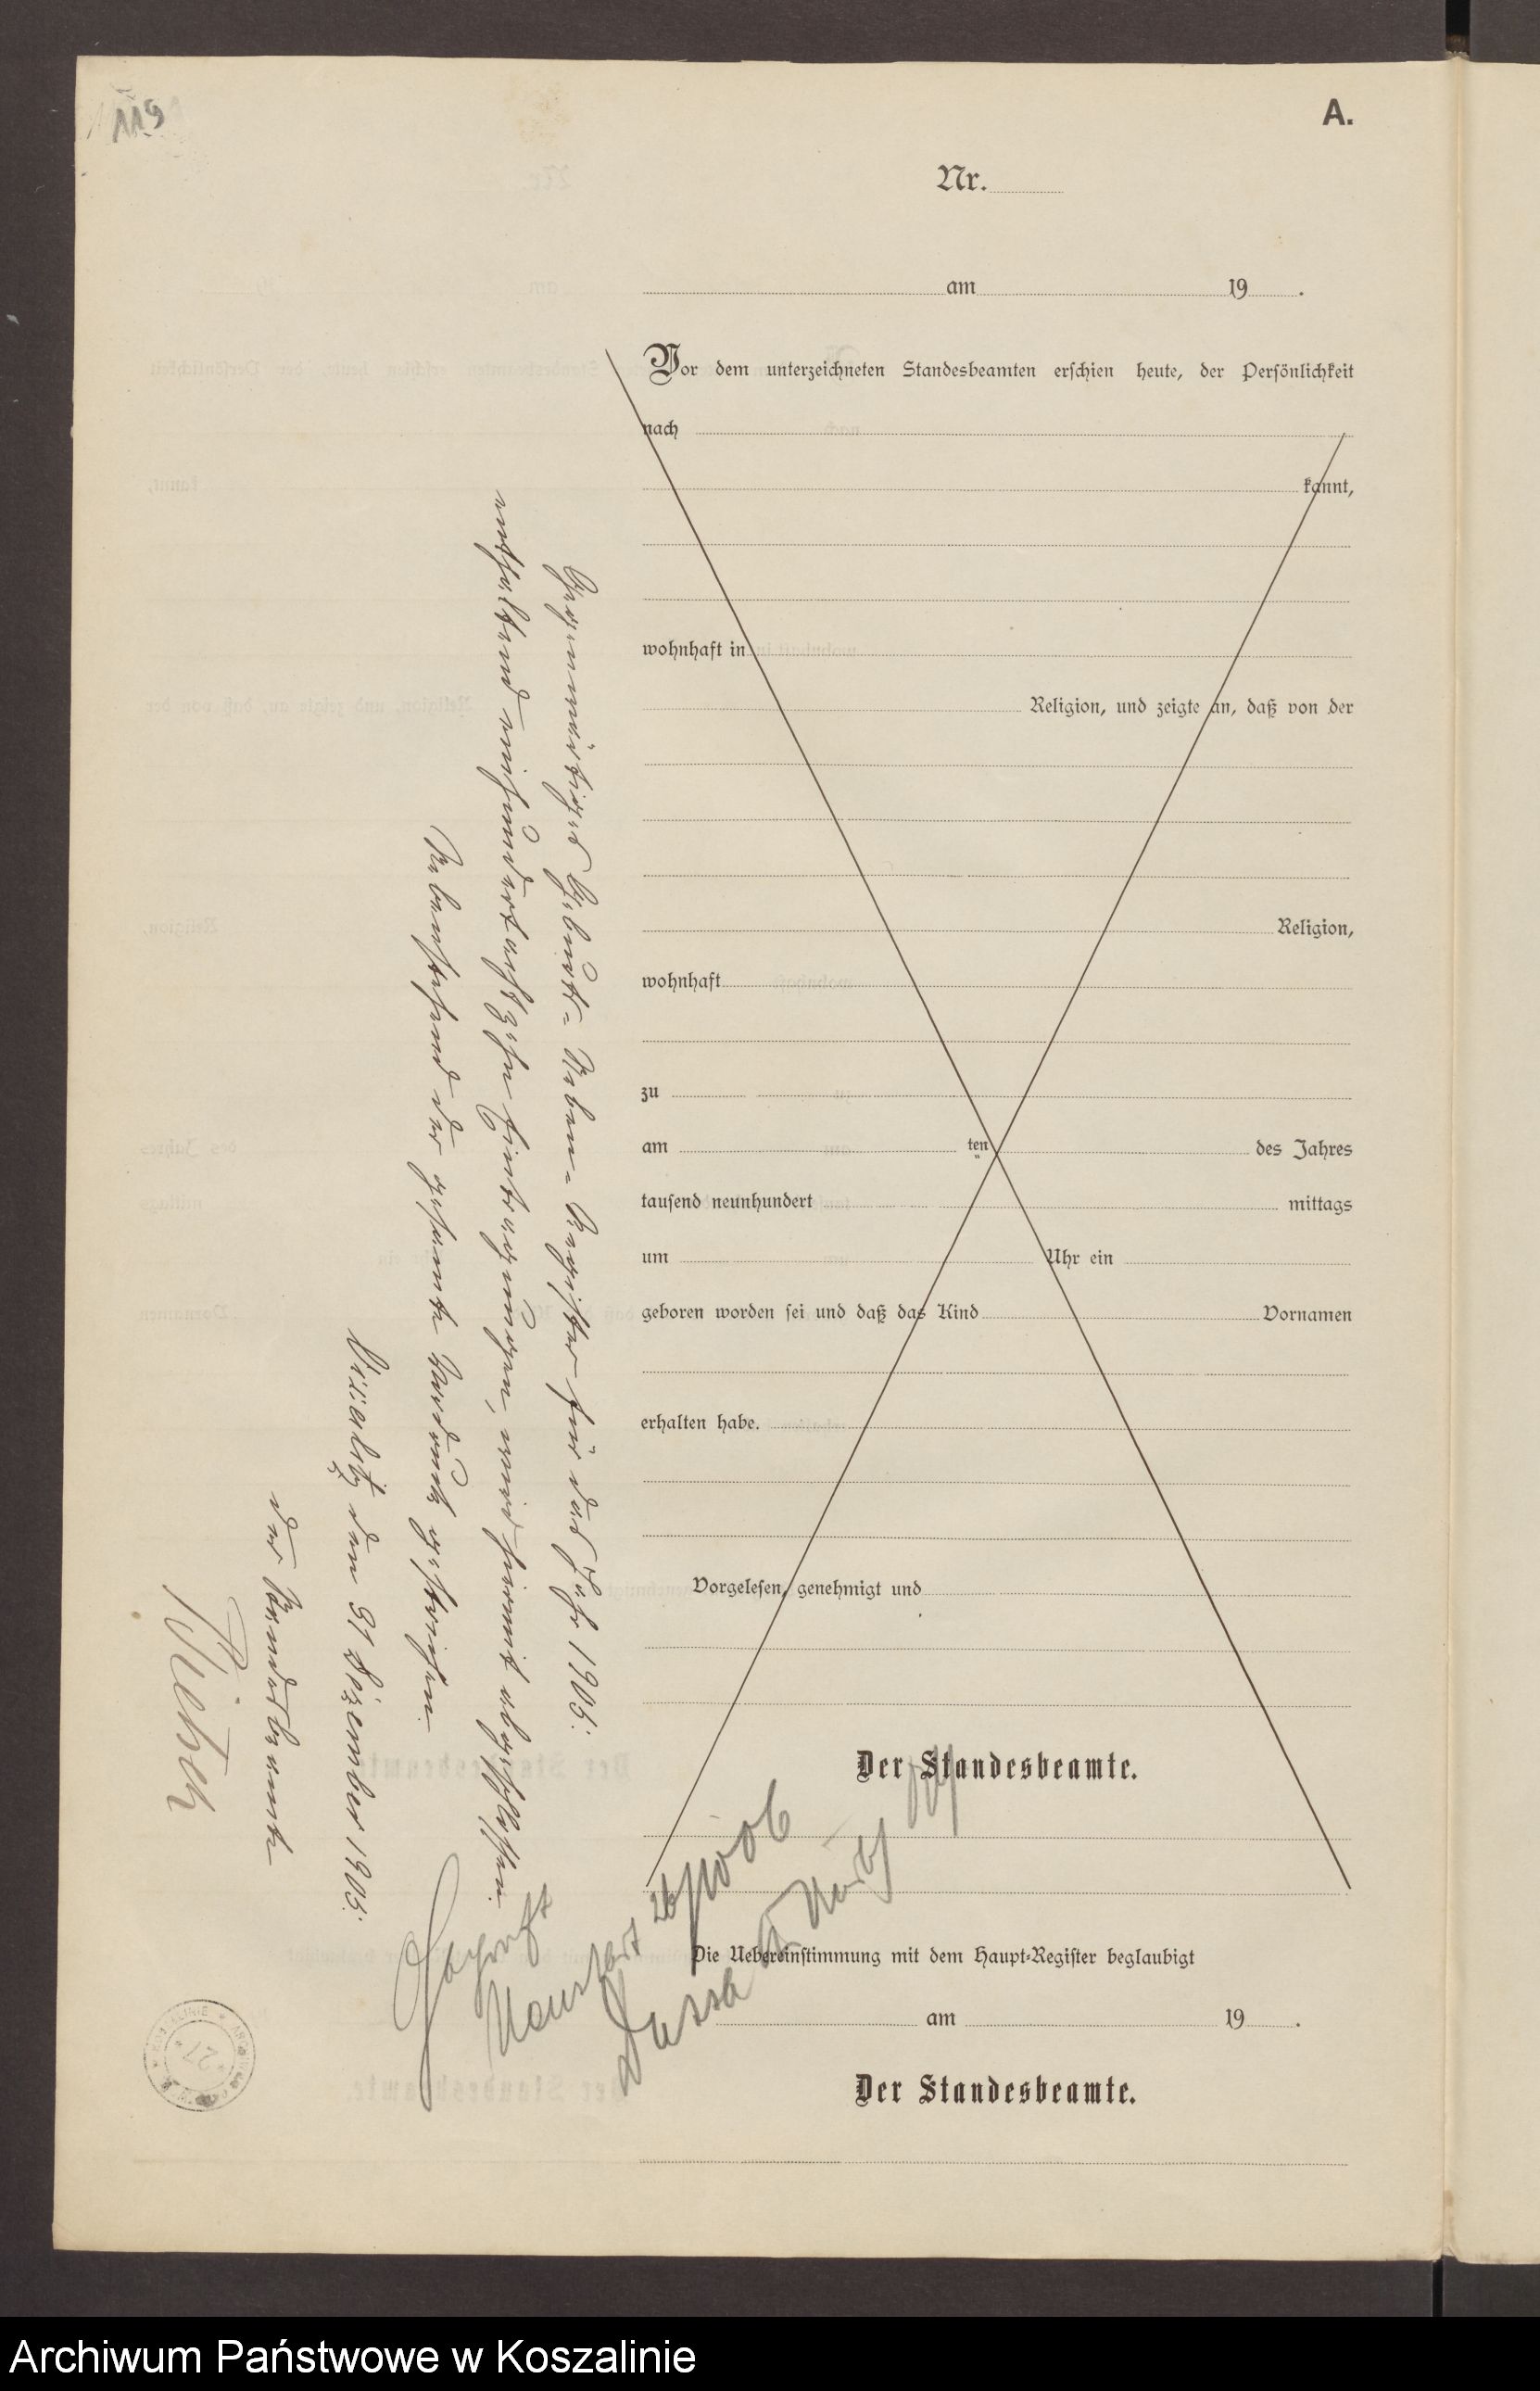 119
A.
Nr.
am 19 .
Vor dem unterzeichneten Standesbeamten erschien heute, der Persönlichkeit
nach
kannt,
wohnhaft in
Religion, und zeigte an, daß von der
Religion,
wohnhaft
zu
am ten des Jahres
tausend neunhundert mittags
um Uhr ein
geboren worden sei und daß das Kind Vornamen
erhalten habe.
Vorgelesen, genehmigt und
Der Standesbeamte.
Die Uebereinstimmung mit dem Haupt-Register beglaubigt
am 19 .
Der Standesbeamte.
Gegenwärtiges Geburts- Neben- Register für das Jahr 1905.
enthaltend einhundertachtzehn Eintragungen, wird hiermit abgeschlossen.
Nebenstehend der gesamte Vordruck gestrichen.
den 31 Dezember 1905.
der Standesbeamte
Geprüft
27
Archiwum Państwowe w Koszalinie